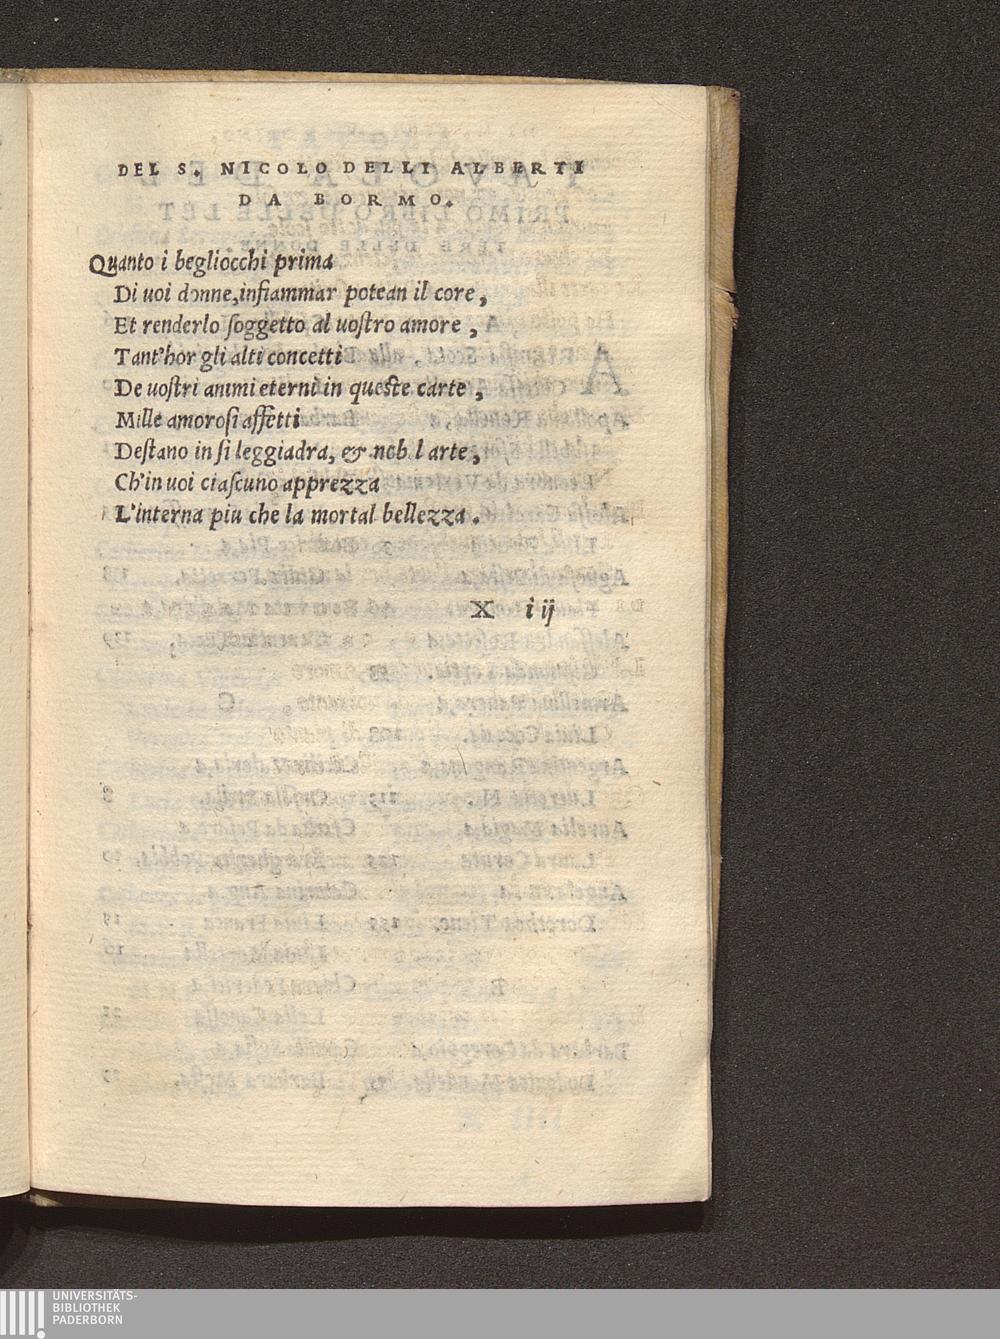 DEL S. NICOLO DELLI ALBERTI
DA BORMO.
Quanto i begliocchi prima
Di uoi donne, infiammar potean il core,
Et renderlo soggetto al uostro amore,
Tant'hor gli alti concetti
De uostri animi eterni in queste carte,
Mille amorosi affetti
Destano in si leggiadra, & nob l arte,
Ch'in uoi ciascuno apprezza
L'interna piu che la mortal bellezza.
X iij
UNIVERSITÄTS-
BIBLIOTHEK
PADERBORN